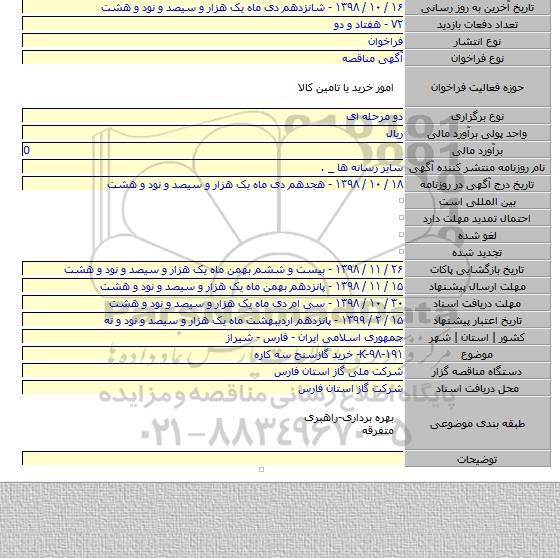 تاریخ آخرین به روز رسانی ۱۶ / ۱۰ / ۱۳۹۸ - شانزدهم دی ماه یک هزار و سیصد و نود و هشت
تعداد دفعات بازدید ۷۲ - هفتاد و دو
نوع انتشار فراخوان
نوع فراخوان آگهی مناقصه
حوزه فعالیت فراخوان امور خرید یا تامین کالا
نوع برگزاری دو مرحله ای
واحد پولی برآورد مالی ریال
برآورد مالی 0
نام روزنامه منتشر کننده آگهی سایر رسانه ها _ .
تاریخ درج آگهی در روزنامه ۱۸ / ۱۰ / ۱۳۹۸ - هجدهم دی ماه یک هزار و سیصد و نود و هشت
بین المللی است
احتمال تمدید مهلت دارد
لغو شده
تجدید شده
تاریخ بازگشایی پاکات ۲۶ / ۱۱ / ۱۳۹۸ - بیست و ششم بهمن ماه یک هزار و سیصد و نود و هشت
مهلت ارسال پیشنهاد ۱۵ / ۱۱ / ۱۳۹۸ - پانزدهم بهمن ماه یک هزار و سیصد و نود و هشت
مهلت دریافت اسناد ۳۰ / ۱۰ / ۱۳۹۸ - سی ام دی ماه یک هزار و سیصد و نود و هشت
تاریخ اعتبار پیشنهاد ۱۵ / ۲ / ۱۳۹۹ - پانزدهم اردیبهشت ماه یک هزار و سیصد و نود و نه
کشور | استان | شهر جمهوری اسلامی ایران - فارس - شیراز
موضوع K-۹۸-۱۹۱- خرید گازسنج سه کاره
دستگاه مناقصه گزار شرکت ملی گاز استان فارس
محل دریافت اسناد شرکت گاز استان فارس
پایگاه اطلاع رسانی مناقصه و مزایده
طبقه بندی موضوعی بهره برداری-راهبری
متفرقه
۰۲۱-۸۸۳۴۹۶۷۰-۵
توضیحات